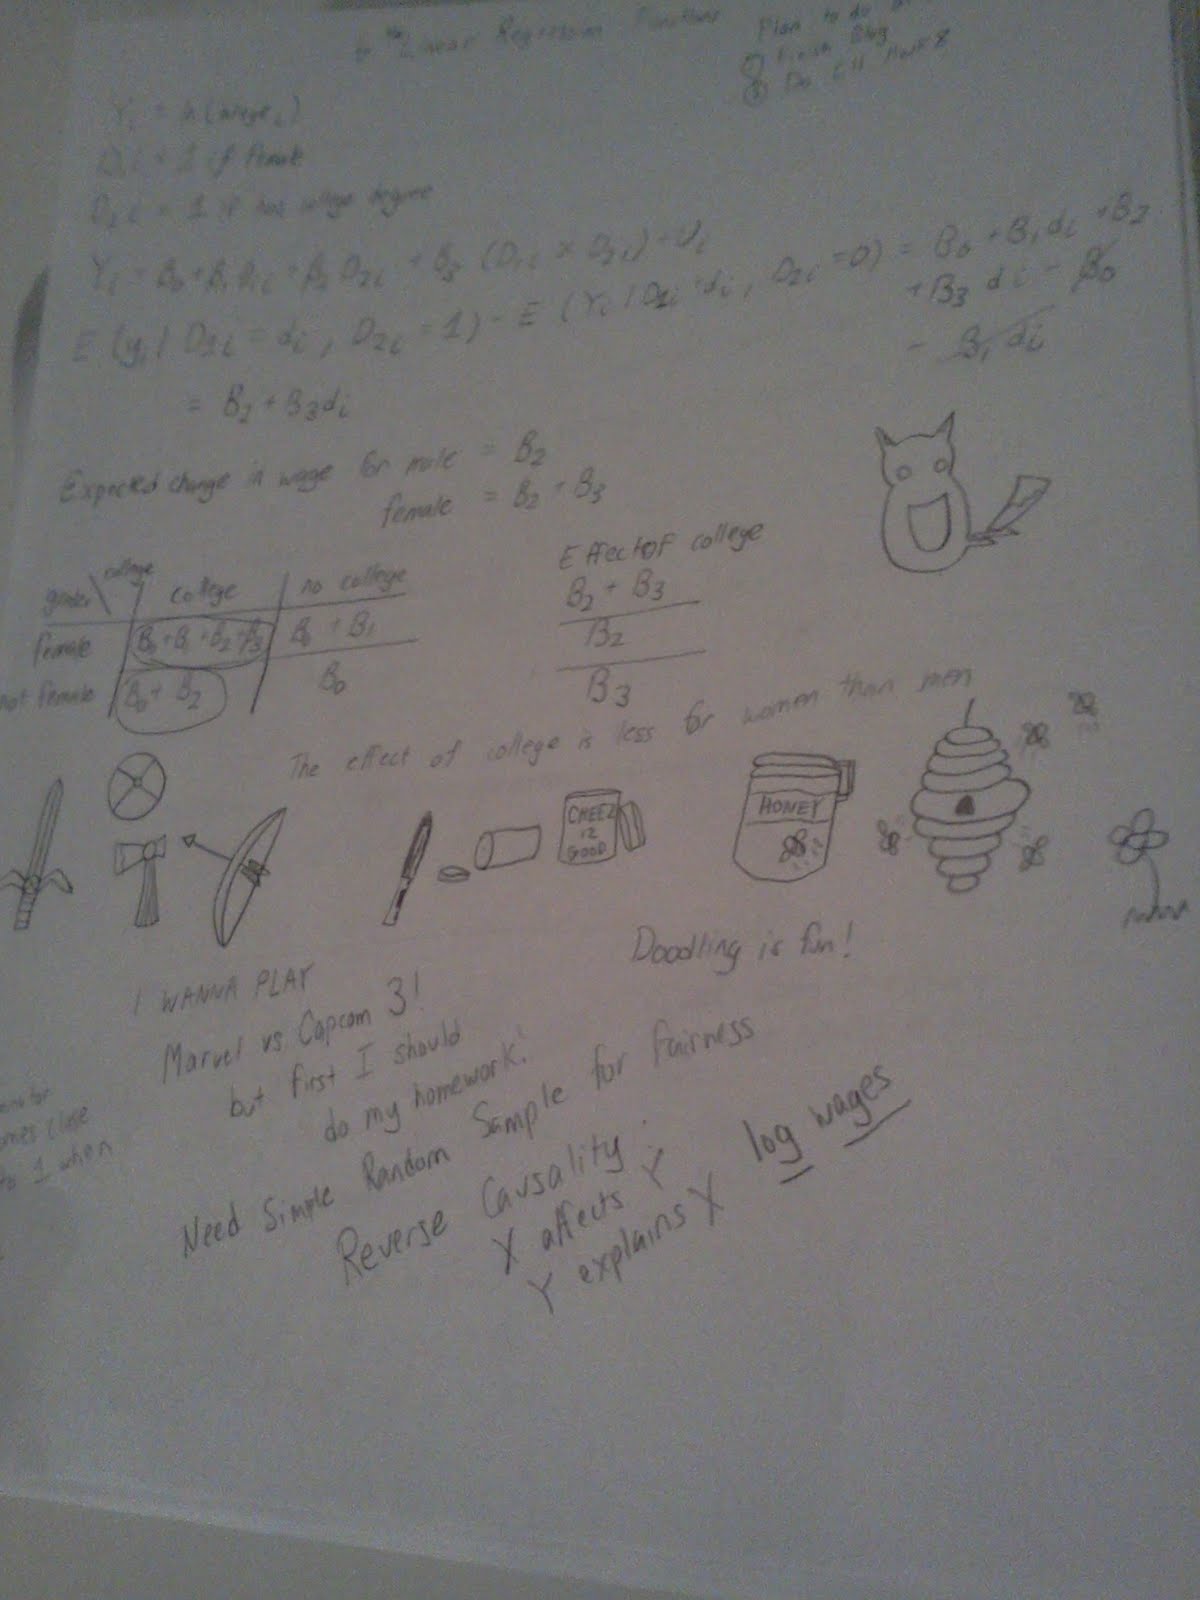 Linear Regression Functions
Plan to do
① Finish Blog
② Do
Yi = ln(wagei)
D1i = 1 if female
D2i = 1 if has college degree
Yi = B0 + B1 D1i + B2 D2i + B3 (D1i x D2i) + Ui
E (yi | D1i = di, D2i = 1) - E (Yi | D1i = di, D2i = 0) = B0 + B1 di + B2
+ B3 di - B0
- B1 di
= B2 + B3 di
Expected change in wage for male = B2
female = B2 + B3
Effect of college
gender \ college
college
no college
B2 + B3
female
B0 + B1 + B2 + B3
B0 + B1
B2
not female
B0 + B2
B0
B3
The effect of college is less for women than men
CHEEZ
IZ
GOOD
HONEY
Doodling is fun!
I WANNA PLAY
Marvel vs. Capcom 3!
but first I should
do my homework!
Need Simple Random Sample for fairness
Reverse Causality:
X affects Y
Y explains X
log wages
omes close
to 1 when